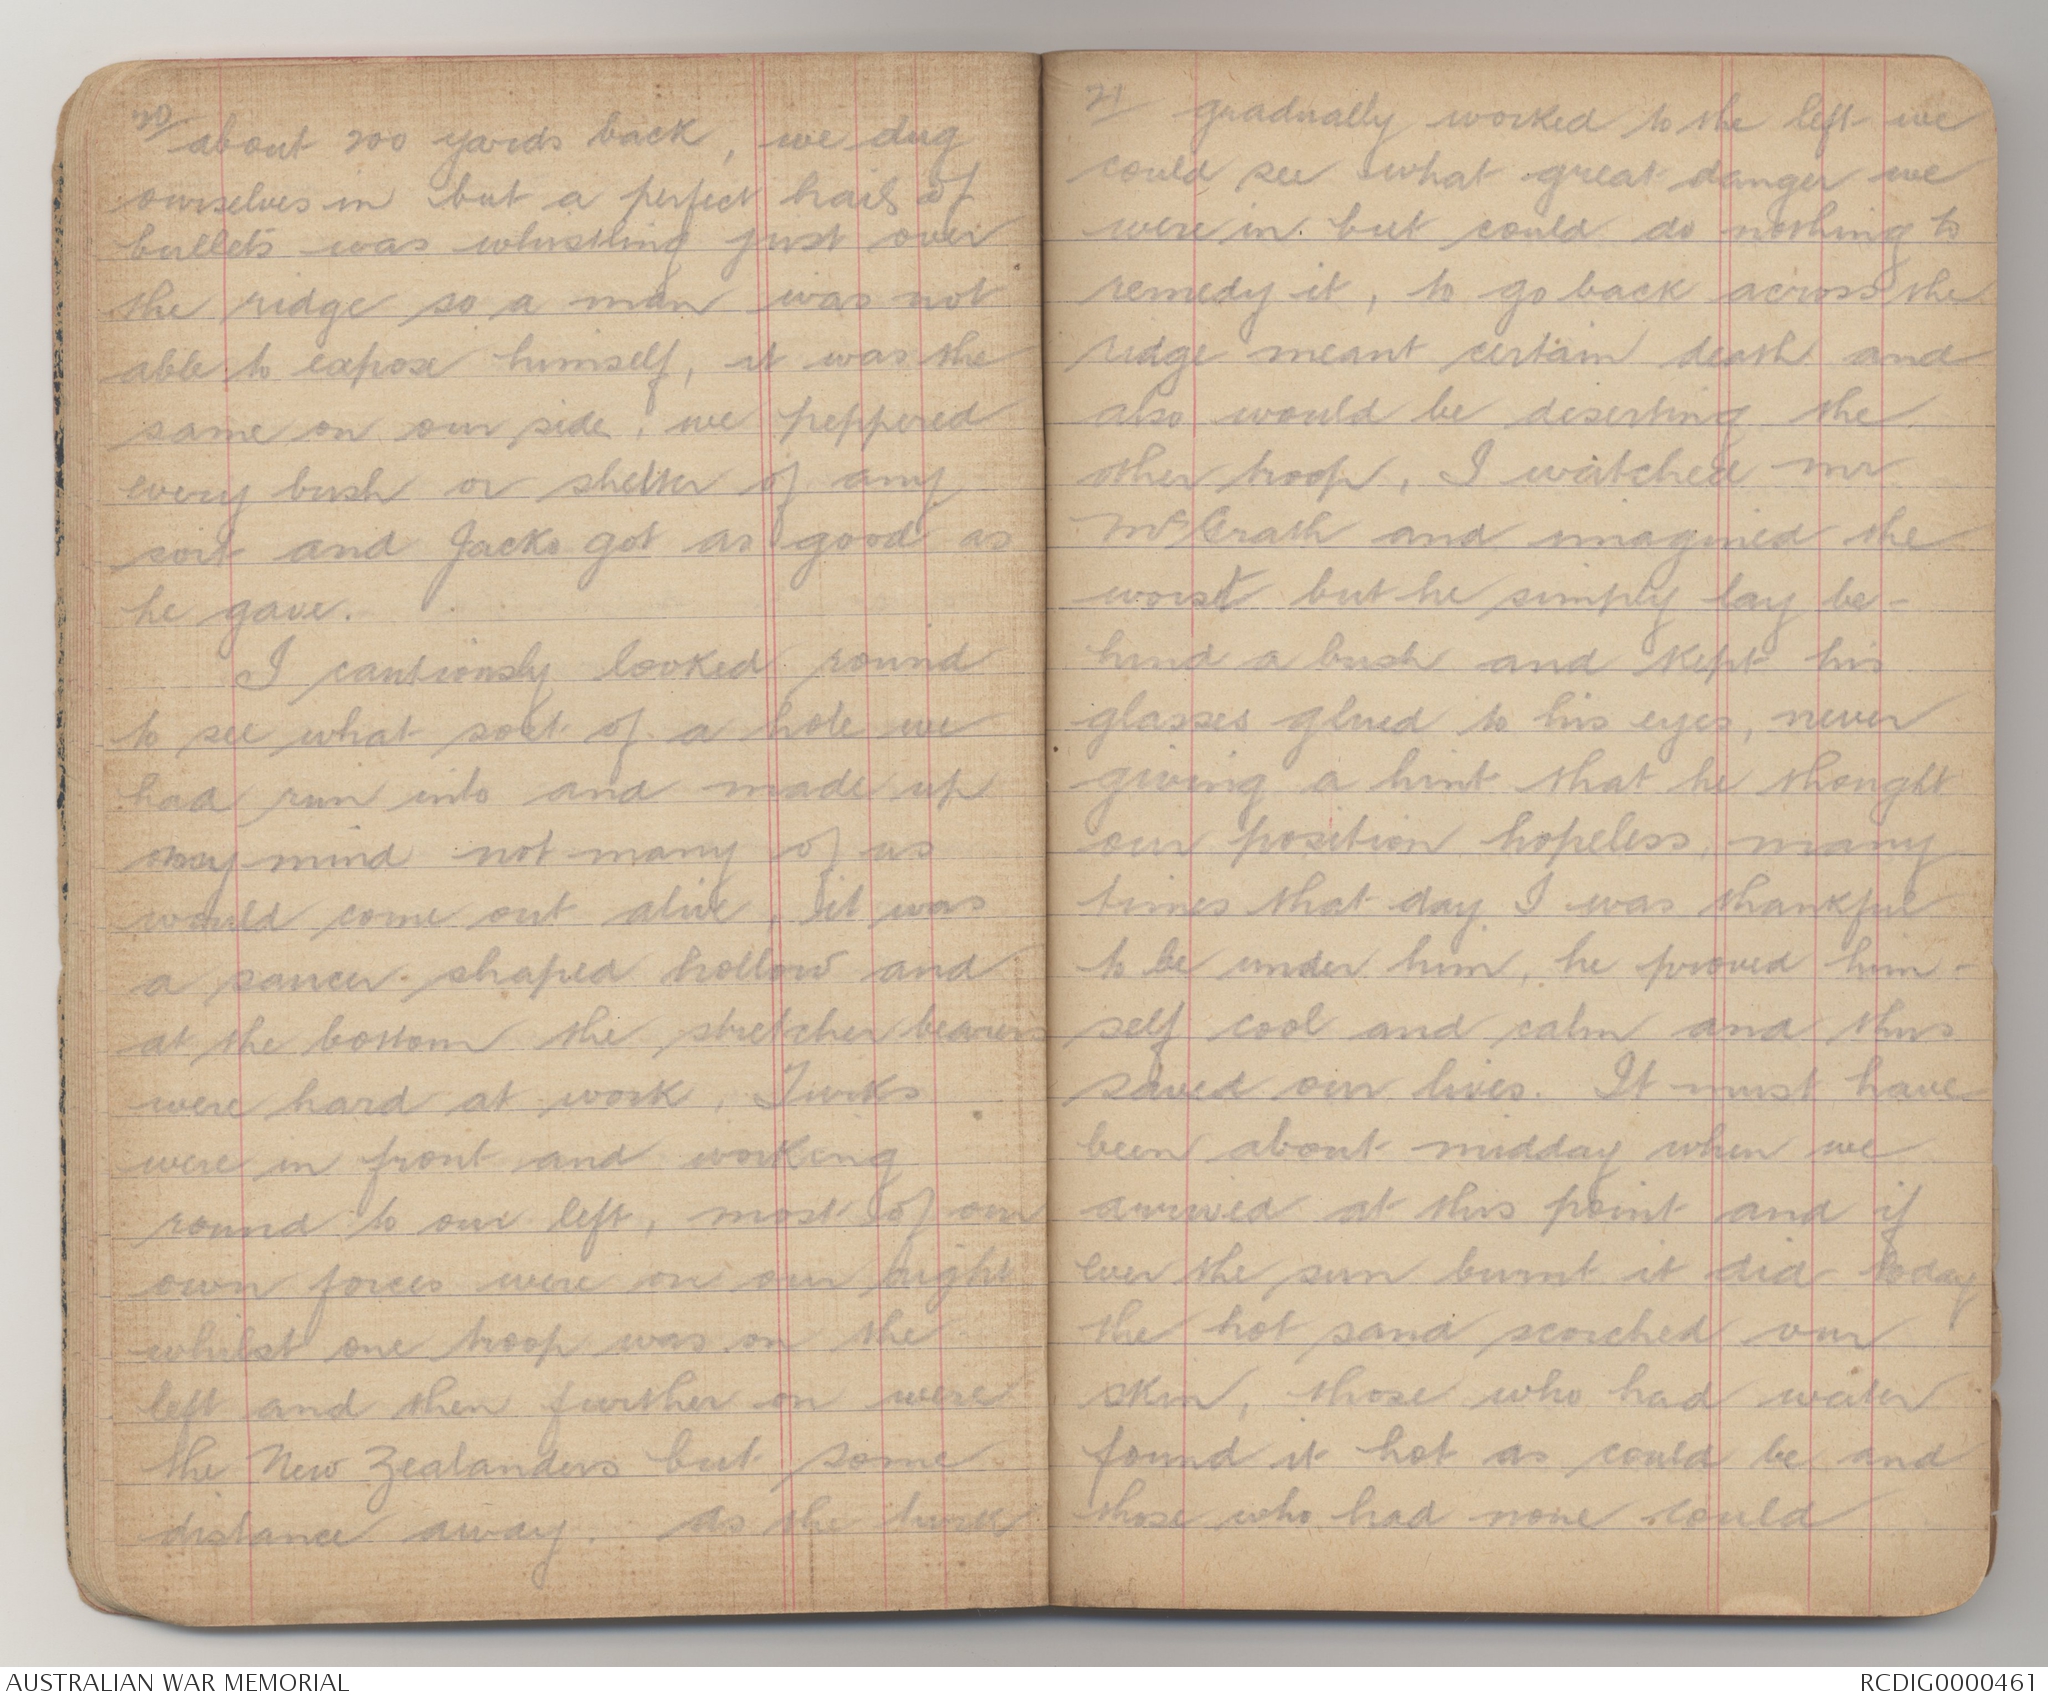 20/ about 200 yards back, we dug
ourselves in but a perfect hail of
bullets was whistling just over
the ridge so a man was not
able to expose himself, it was the
same on our side, we peppered
every bush or shelter of any
sort and Jacko got as good as
he gave.
I cautiously looked round
to see what sort of a hole we
had run into and made up
my mind not many of us
would come out alive, it was
a saucer-shaped hollow and
at the bottom the stretcher bearers
were hard at work, Turks
were in front and working
round to our left, most of our
own forces were on our right
whilst one troop was on the
left and then further on were
the New Zealanders but some
distance away. As the Turk
21/ gradually worked to the left we
could see what great danger we
were in but could do nothing to
remedy it, to go back across the
ridge meant certain death and
also would be deserting the
other troop, I watched Mr
McGrath and imagined the
worst but he simply lay be-
hind a bush and kept his
glasses glued to his eyes, never
giving a hint that he thought
our position hopeless, many
times that day I was thankful
to be under him, he proved him-
self cool and calm and thus
saved our lives. It must have
been about midday when we
arrived at this point and if
ever the sun burnt it did today
the hot sand scorched our
skin, those who had water
found it hot as could be and
those who had none could
AUSTRALIAN WAR MEMORIAL
RCDIG0000461